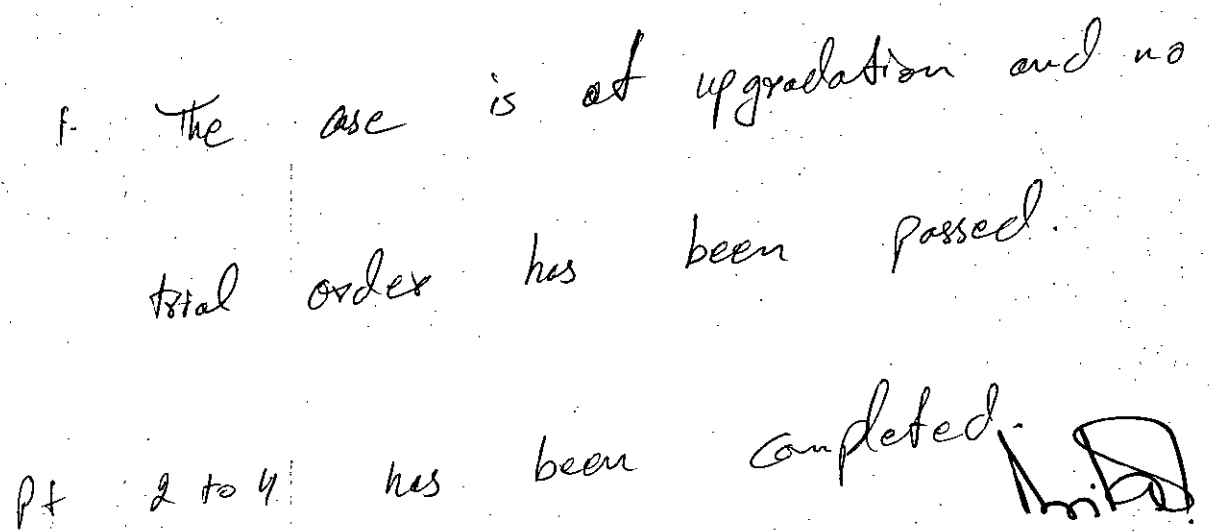 1- The case is at upgradation and no
trial order has been passed.
Pt 2 to 4 has been completed.